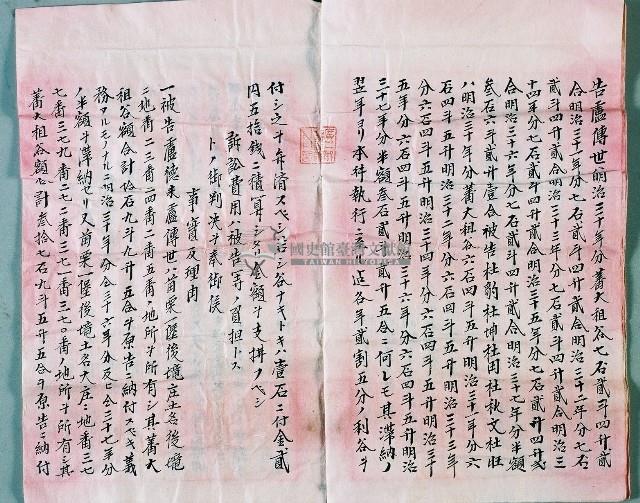 告盧傳世明治三十年分蕃大租谷七石貳斗四升貳
合明治三十一年分七石貳斗四升貳合明治三十二年分七石
貳斗四升貳合明治三十三年分七石貳斗四升貳合明治三
十四年分七石貳斗四升貳合明治三十五年分七石貳斗四升貳
合明治三十六年分七石貳斗四升貳合明治三十七年分半額
叁石六斗貳升壹合被告杜豹杜坤杜田杜秋文杜旺
八明治三十年分蕃大租谷六石四斗五升明治三十一年分六
石四斗五升明治三十二年分六石四斗五升明治三十三年
分六石四斗五升明治三十四年分六石四斗五升明治三十
五年分六石四斗五升明治三十六年分六石四斗五升明治
三十七年分半額叁石貳斗貳升五合ニ何レモ其滞納ノ
翌年ヨリ本件執行ニ至ル迄各年貳割五分ノ利谷ヲ
付シ之ヲ弁済スベシ若シ谷ナキトキハ壹石ニ付金貳
円五拾銭ニ積算シタル金額ヲ支拂フベシ
訴訟費用ハ被告等ノ負担トス
トノ御判決ヲ奉仰候
事實及理由
一被告盧德來盧傳世ハ苗栗一堡後壠庄土名後壠
ニ地番二三番二四番二五番ノ地所ヲ所有シ其蕃大
租谷額合計拾石九斗九升五合ヲ原告ニ納付スベキ義
務アルモノナルニ明治三十年分ヨリ仝三十六年分及ビ仝三十七年分
ノ半額ヲ滞納セリ又苗栗一堡後壠土名大庄ニ地番三七
七番三七九番二七二番三七一番三七〇番ノ地所ヲ所有シ其
蕃大租谷額合計叁拾七石九斗五升五合ヲ原告ニ納付
國史館臺灣文獻館
TAIWAN HISTORICA